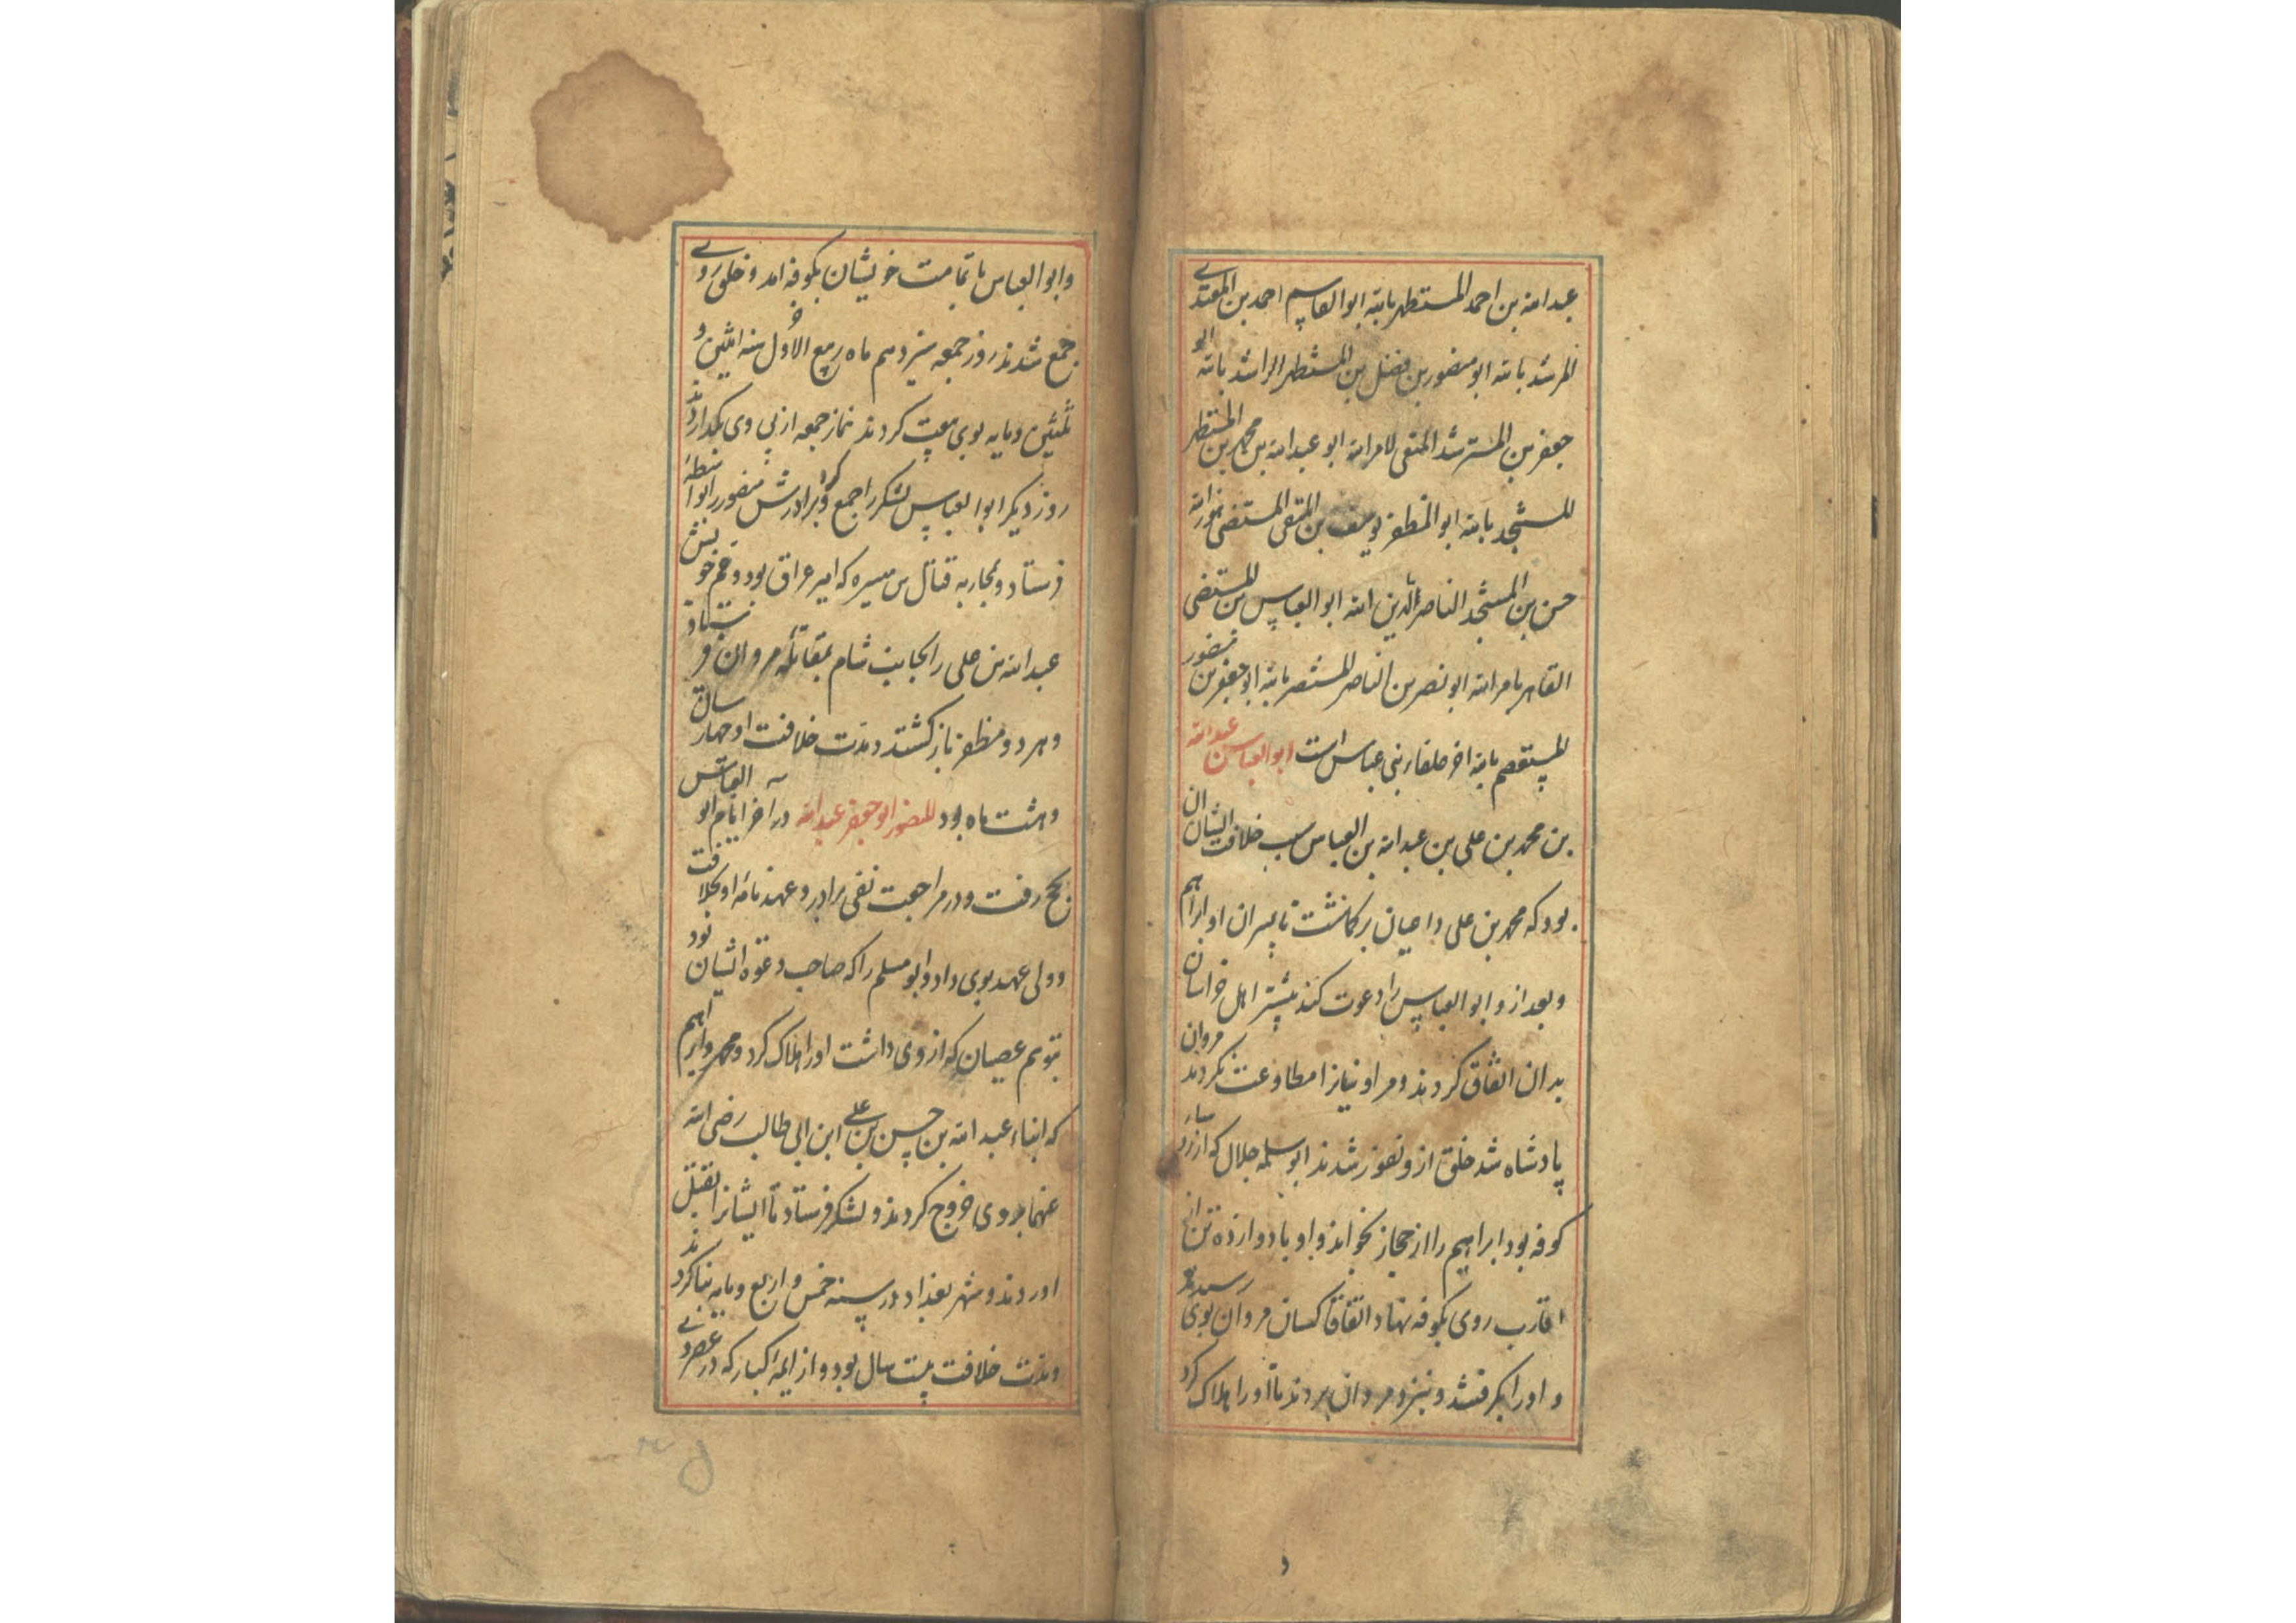 عبدالله بن احمد المستظهر بالله ابوالقاسم احمد بن المقتدی
المرشد بالله ابو منصور بن فضل بن المستظهر الراشد بالله ابو
جعفر بن المسترشد المقتفی لامرالله ابو عبدالله بن محمد بن المستظهر
المستنجد بالله ابوالمظفر یوسف بن المقتفی المستضی بنورالله
حسن بن المستنجد الناصر لدین الله ابوالعباس بن المستضی
القاهر بامرالله ابو نصر بن الناصر المستنصر بالله ابوجعفر بن منصور
المستعصم بالله اخر خلفاء بنی عباس است ابوالعباس عبدالله
بن محمد بن علی بن عبدالله بن العباس سبب خلافت ایشان ان
بود که محمد بن علی داعیان برکماشت تا پسران او ابراهیم
و بعد ازو ابوالعباس را دعوت کنند پیشتر اهل خراسان
بدان اتفاق کردند و مراو نیانرا مطاوعت نکردند مروان
پادشاه شد خلق ازو نفور شدند ابو سلمه خلال که از
کوفه بود ابراهیم را از حجاز بخواند و او با دوازده تن از
اقارب روی بکوفه نهاد اتفاقا کسان مروان بوی رسیدند
و اورا بکرفتند و بنزد مروان بردند تا اورا هلاک کرد
و ابوالعباس با تمامت خویشان بکوفه امد و خلق روی
جمع شدند روز جمعه سیزدهم ماه ربیع الاول سنه اثنین و
ثلثین ومایه بوی بیعت کردند نماز جمعه از پی وی بکذاردند
روز دیکر ابوالعباس لشکر را جمع کرد و برادرش منصور را بواسطه
فرستاد و بمحاربه قتال بن میسره که امیر عراق بود و عم خویش
عبدالله بن علی را بجانب شام بمقاتله مروان فرستاد
و هر دو مظفر باز کشتند و مدت خلافت او چهار سال
و هشت ماه بود المنصور ابوجعفر عبدالله در اخر ایام ابوالعباس
بحج رفت و در مراجعت نفی برادر و عهد نامه او بخلافت
و ولی عهد بوی داد و ابو مسلم را که صاحب دعوه ایشان بود
بتوهم عصیان که از وی داشت اورا هلاک کرد و محمد و ابراهیم
که ابناء عبدالله بن حسن بن علی ابن ابی طالب رضی الله
عنهما بروی خروج کردند و لشکر فرستاد تا ایشانرا بقتل
اوردند و شهر بغداد در سنه خمس و اربع و مایه بنا کردند
و مدت خلافت بیست سال بود و از ایمه کبار که در عصر وی